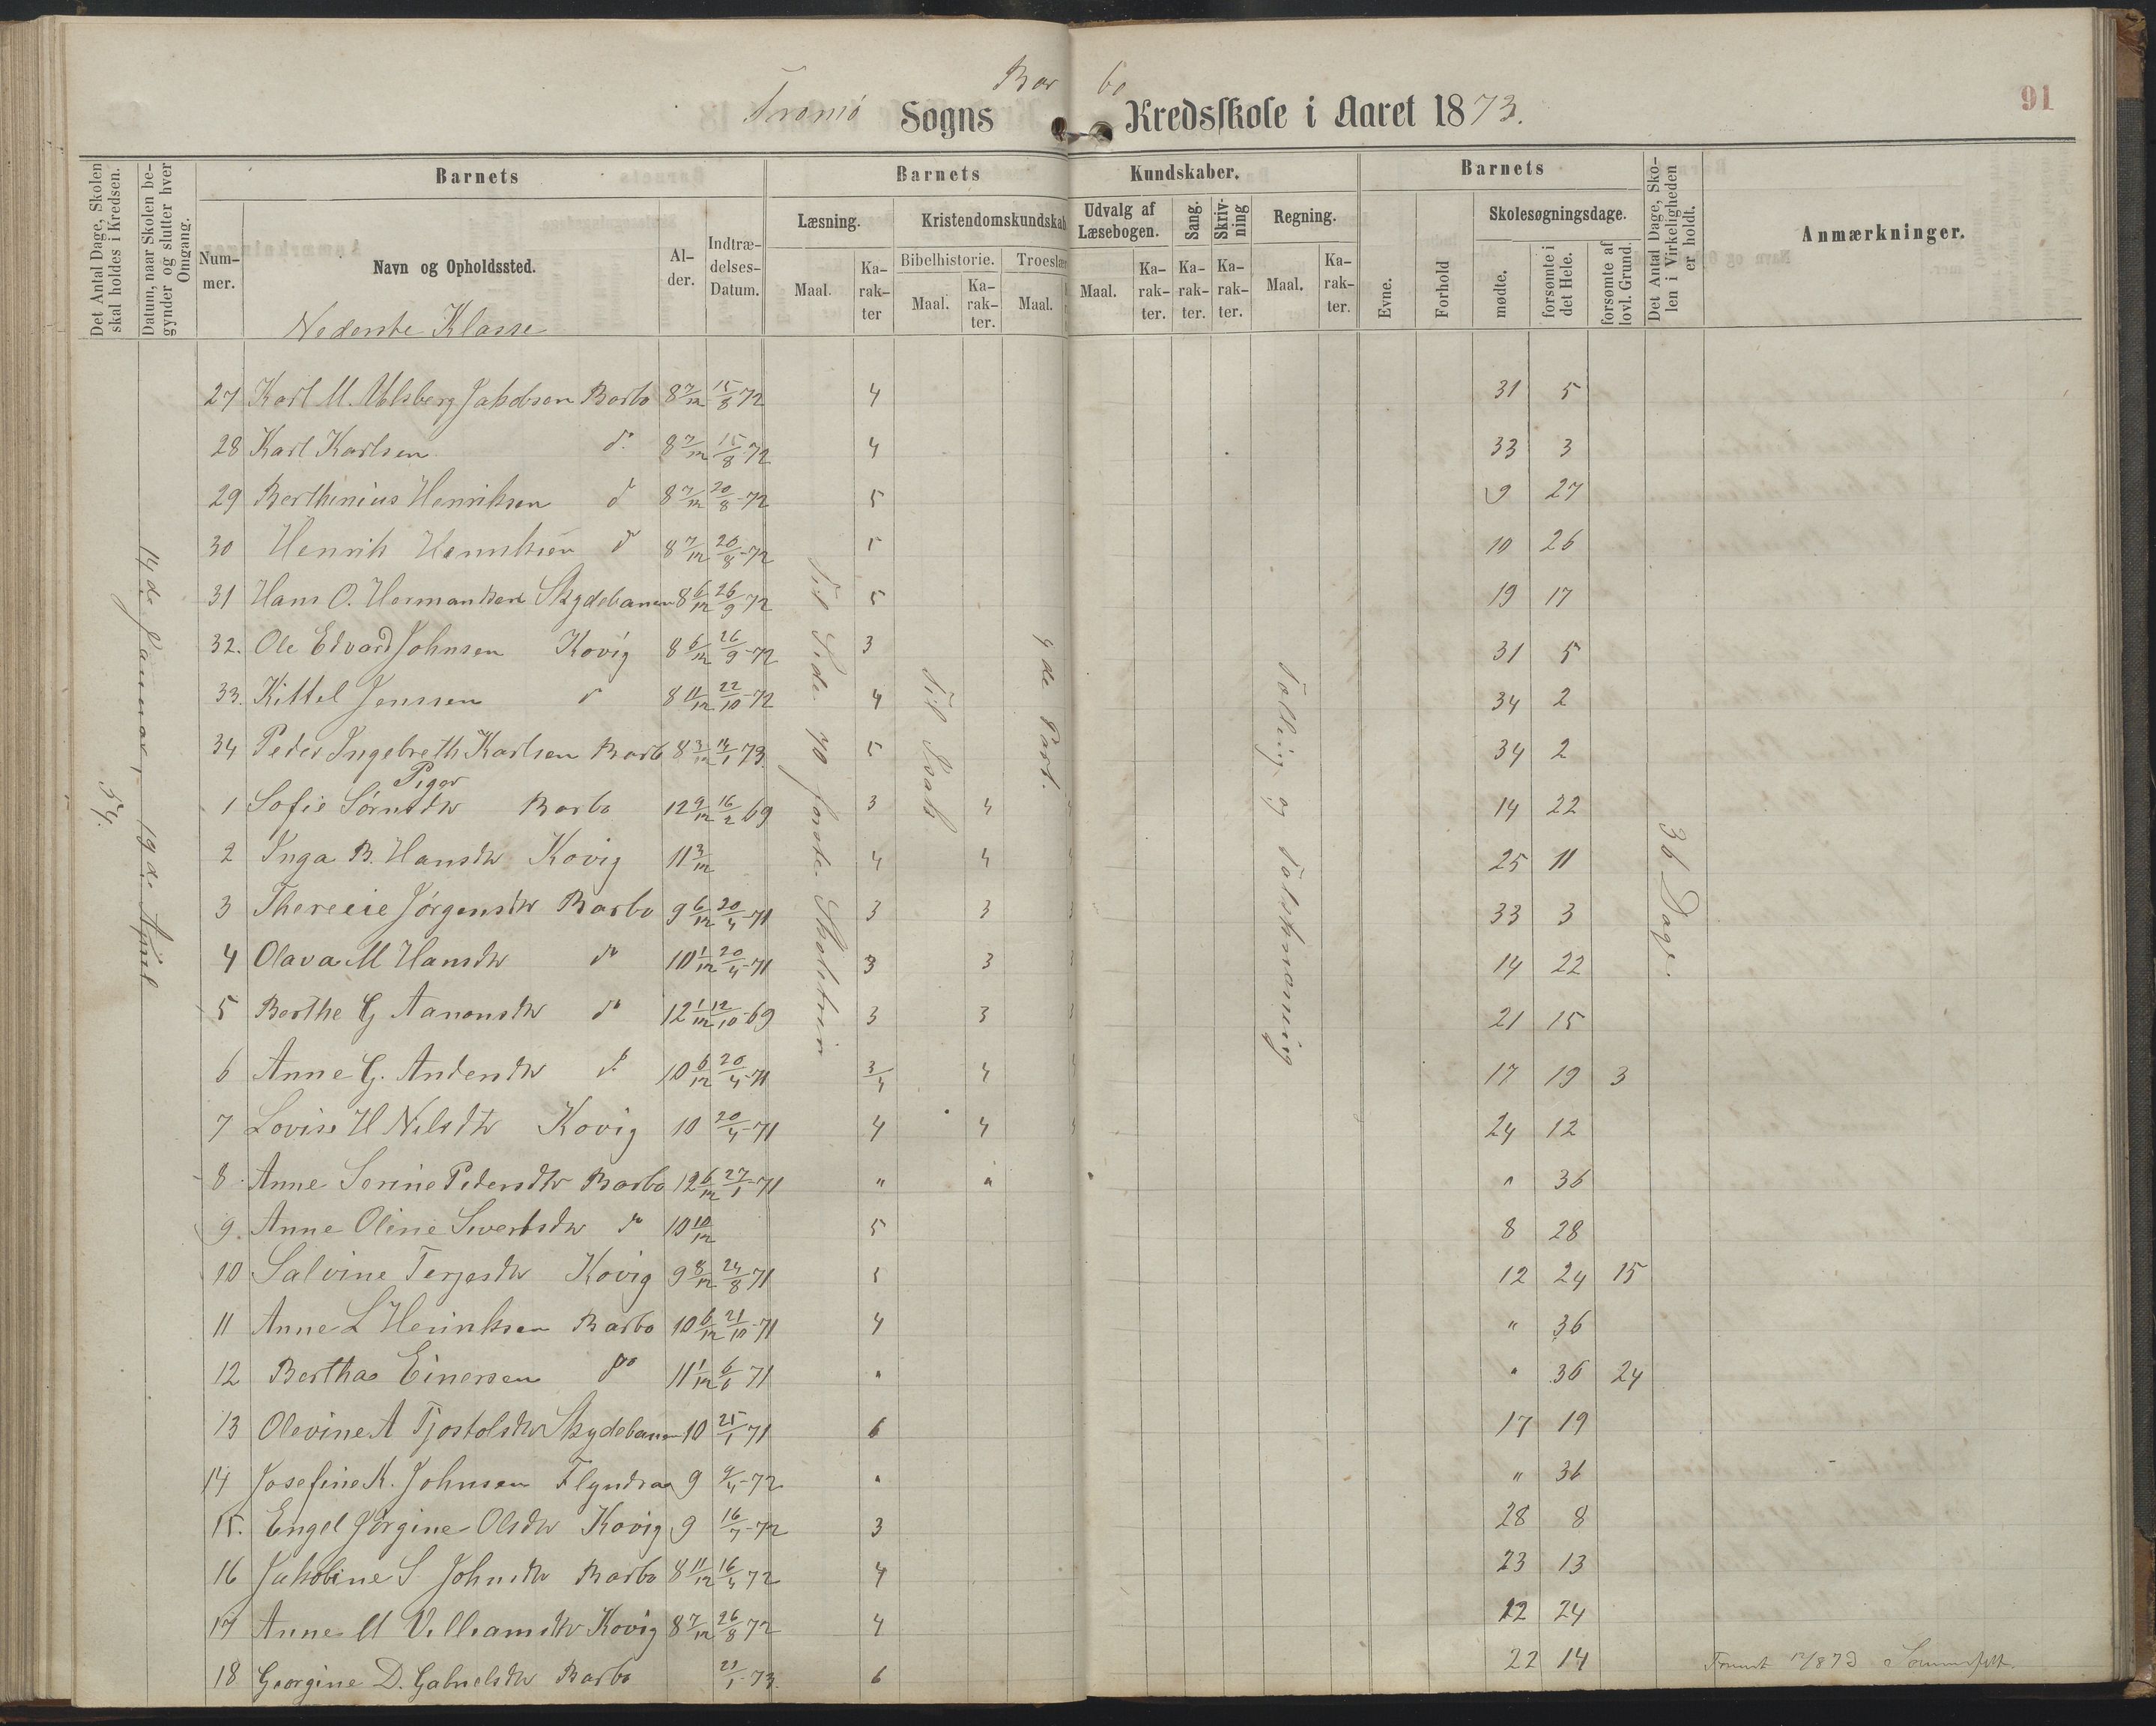 91
Barbo
Tromø Sogns Kredsskole i Aaret 1873.
Det Antal Dage, Skolen skal holdes i Kredsen.
Datum, naar Skolen begynder og slutter hver Omgang.
Barnets
Nummer.
Navn og Opholdssted.
Alder.
Indtrædelses-Datum.
Barnets Kundskaber.
Læsning.
Maal.
Karakter
Kristendomskundskab
Bibelhistorie.
Maal.
Karakter.
Troeslær
Maal.
Udvalg af Læsebogen.
Maal.
Karakter.
Sang.
Karakter.
Skrivning
Karakter.
Regning.
Maal.
Karakter.
Barnets
Evne.
Forhold
Skolesøgningsdage.
mødte.
forsømte i det Hele.
forsømte af lovl. Grund.
Det Antal Dage, Skolen i Virkeligheden er holdt.
Anmærkninger.
Nederste Klasse
54.
14de Januar, 19de April
Til Side 70 første Skoletrin
Til Isak
4de Part.
Tælling og Talskrivning
36 Dage.
27 Karl M. Jakobsen Barbo 8 7/12 15/8 72 4 31 5
28 Karl Karlsen do 8 7/12 15/8 72 4 33 3
29 Berthinius Henriksen do 8 7/12 20/8-72 5 9 27
30 Henrik Henriksen do 8 7/12 20/8-72 5 10 26
31 Hans O. Hermansen Skydebanen 8 6/12 26/9 72 5 19 17
32. Ole Edvard Johnsen Kovig 8 6/12 26/9-72 3 31 5
33. Kittel Jenssen do 8 11/12 22/10-72 4 34 2
34 Peder Ingebreth Karlsen Barb 8 3/12 14/1 73. 5 34 2
Piger
1 Sofie Sørnsdtr Barbo 12 9/12 16/2 69 3 4 14 22
2 Inga B. Hansdtr Kovig 11 3/12 4 4 25 11
3 Theresie Jørgensdtr Barbo 9 6/12 20/4-71 3 3 33 3
4 Olava M Hansdtr do 10 1/12 20/4-71 3 3 14 22
5 Berthe G Aanonsdtr do 12 1/12 12/10-69 3 3 21 15
6 Anne G. Andersdtr do 10 6/12 20/4-71 3/4 4 17 19 3
7 Lovise H Nilsdtr Kovig 10 20/4-71 4 4 24 12
8 Anne Serine Pedersdtr Barbo 12 6/12 27/1-71 " " " 36
9. Anne Oline Sivertsdtr do 10 10/12 5 8 28
10 Salvine Terjesdtr Kovig 9 8/12 24/8 71 5 12 24 15
11 Anne L Henriksen Barbo 10 6/12 21/10-71 4 " 36
12 Bertha Einersen do 11 1/12 6/6 71 " " 36 24
13 Olevine A Tjostolsdtr Skydebanen 10 25/1 71 6 17 19
14 Josefine K. Johnsen Flyndraa 9 9/4-72 " " 36
15. Engel Jørgine Olsdtr Kovig 9 16/4-72 3 28 8
16 Jakobine S Johnsdtr Barbo 8 11/12 16/4 72 4 23 13
17 Anne M Villiamsdtr Kovig 8 7/12 26/8 72 4 12 24
18 Georgine D. Gabrielsdtr Barbo 21/1-73. 6 22 14
Sommerfelt.